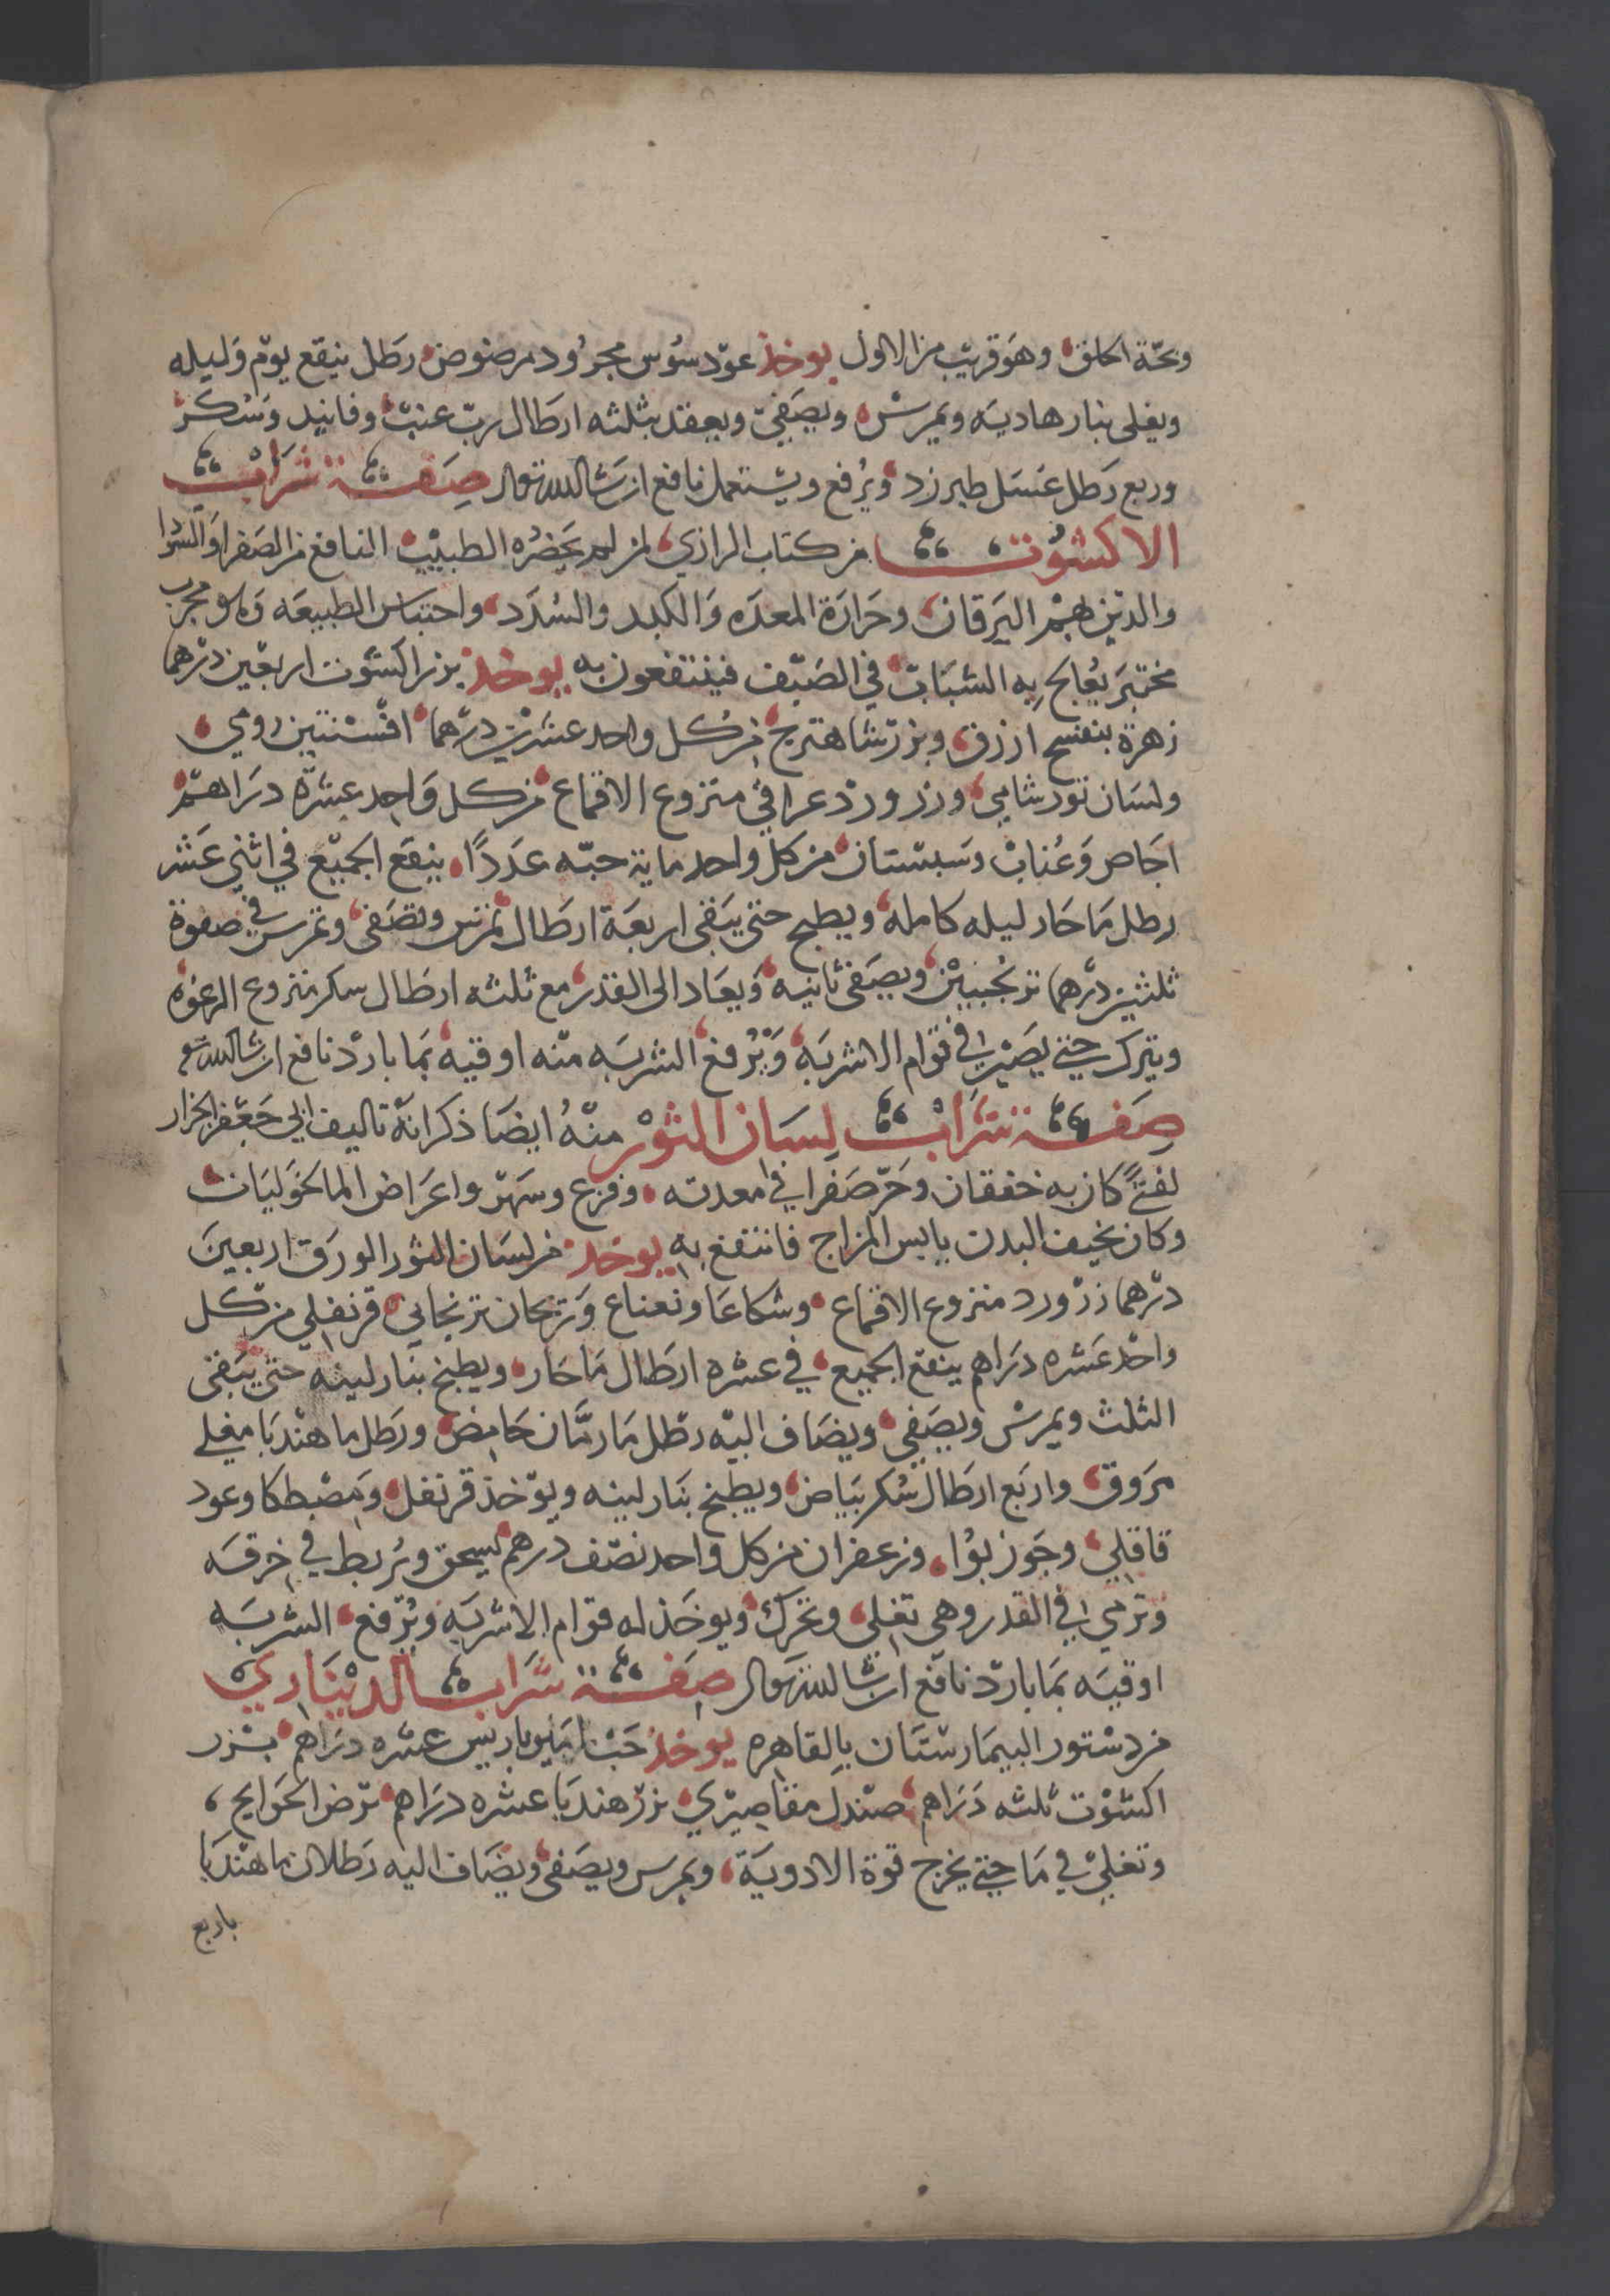 وبحّة الحلق وهو قريب من الاول يوخذ عود سوس مجرود مرضوض رطل ينقع يوم وليله
ويغلى بنار هاديه ويمرس ويصفى ويعقد بثلثه ارطال رب عنب وفانيد وسكر
وربع رطل عسل طبرزد ويرفع ويستعمل نافع ان شا الله تعالى صفة شراب
الاكشوث من كتاب الرازي لمن لم يحضره الطبيب النافع من الصفرا والسودا
والذين بهم اليرقان وحرارة المعده والكبد والسدد واحتباس الطبيعه مجرب
مختبر يعالج به الشباب في الصيف فينتفعون به يوخذ بزر اكشوت اربعين درهما
زهرة بنفسج ازرق وبزر شاهترج من كل واحد عشرين درهما افسنتين رومي
ولسان ثور شامي وزر ورد عراقي منزوع الاقماع من كل واحد عشره دراهم
اجاص وعناب وسبستان من كل واحد ماية حبه عددًا ينقع الجميع في اثني عشر
رطل ما حار ليله كامله ويطبخ حتى يبقى اربعة ارطال تمرس وتصفى وتمرس في صفوة
ثلثين درهما ترنجبين ويصفى ثانيه ويعاد الى القدر مع ثلثه ارطال سكر منزوع الرغوه
ويترك حتى يصير في قوام الاشربه ويرفع الشربه منه اوقيه بما بارد نافع ان شا الله تع
صفة شراب لسان الثور منه ايضا ذكر انه تاليف ابي جعفر الجزار
لفتىً كان به خفقان وحر صفرا في معدته وفزع وسهر واعراض الماليخوليات
وكان نحيف البدن يابس المزاج فانتفع به يوخذ من لسان الثور الورق اربعين
درهما زر ورد منزوع الاقماع وشكاعا ونعناع وريحان ترنجاني قرنفلي من كل
واحد عشره دراهم ينقع الجميع في عشره ارطال ما حار ويطبخ بنار لينه حتى يبقى
الثلث ويمرس ويصفى ويضاف اليه رطل ما رمان حامض ورطل ما هندبا مغلي
مروق واربع ارطال سكر بياض ويطبخ بنار لينه ويوخذ قرنفل ومصطكا وعود
قاقلي وجوز بوا وزعفران من كل واحد نصف درهم يسحق ويربط في خرقه
وترمي في القدر وهي تغلي وتحرك ويوخذ له قوام الاشربه ويرفع الشربه
اوقيه بما بارد نافع ان شا الله تعالى صفة شراب الديناري
من دستور البيمارستان بالقاهره يوخذ حب امبرباريس عشره دراهم بزر
اكشوت ثلثه دراهم صندل مقاصيري بزر هندبا عشره دراهم ترض الحوايج
وتغلى في ما حتى يخرج قوة الادوية ويمرس ويصفى ويضاف اليه رطلان ما هندبا
باربع